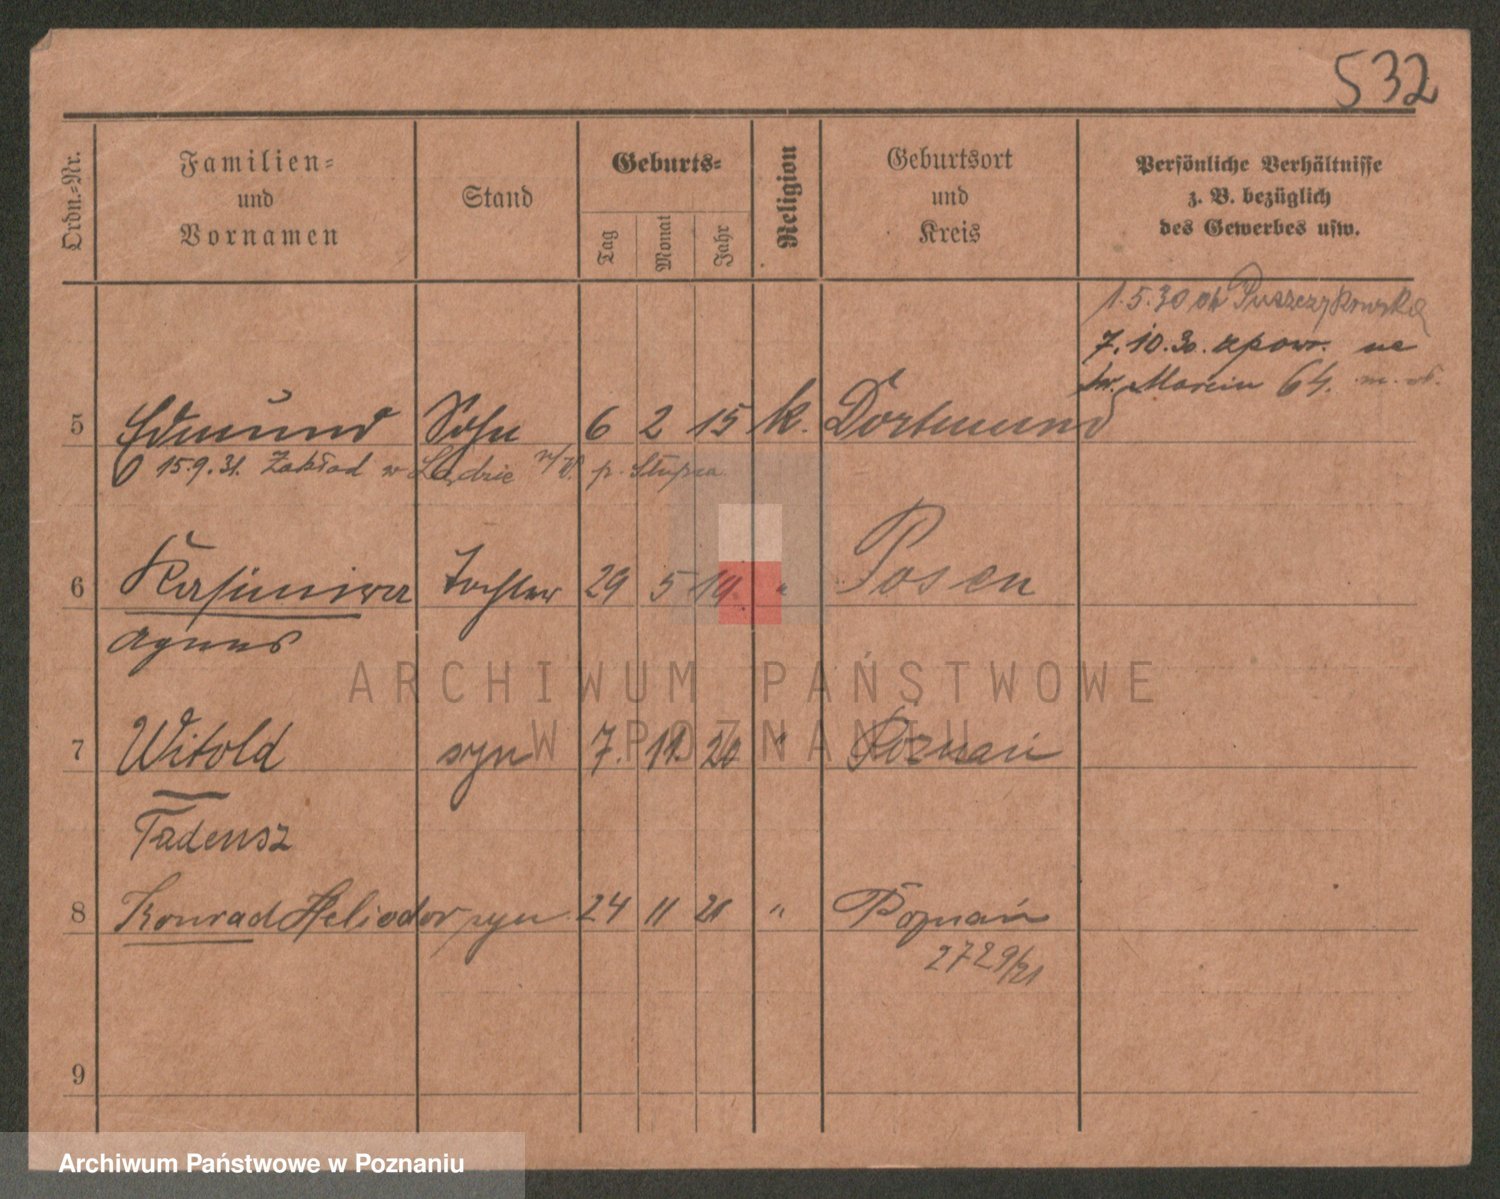 532
Ordn.-Nr.
Familien-
und
Vornamen
Stand
Geburts-
Tag
Monat
Jahr
Religion
Geburtsort
und
Kreis
Persönliche Verhältnisse
z. B. bezüglich
des Gewerbes usw.
1.5.30
7.10.30. zpowr. na
św. Marcin 64.
5 Edmund Sohn 6 2 15 k. Dortmund
15.9.31. Zakład w Lądzie n/W. p. Słupca
6 Kasimira Tochter 29 5 19. " Posen
Agnes
7 Witold syn 7. 11. 20 " Poznań
Tadeusz
8 Konrad Heliodor syn 24 11 21 " Poznań
2729/21
9
ARCHIWUM PAŃSTWOWE
W POZNANIU
Archiwum Państwowe w Poznaniu